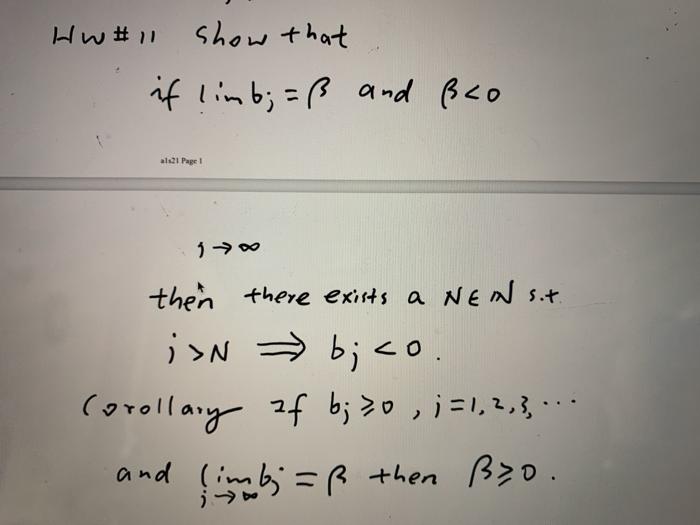 HW#11 show that
if lim bj = β and β<0
als21 Page 1
j→∞
then there exists a N∈ℕ s.t.
j>N ⟹ bj <0.
Corollary If bj ≥0, j=1,2,3, ...
and lim bj = β then β≥0.
j→∞